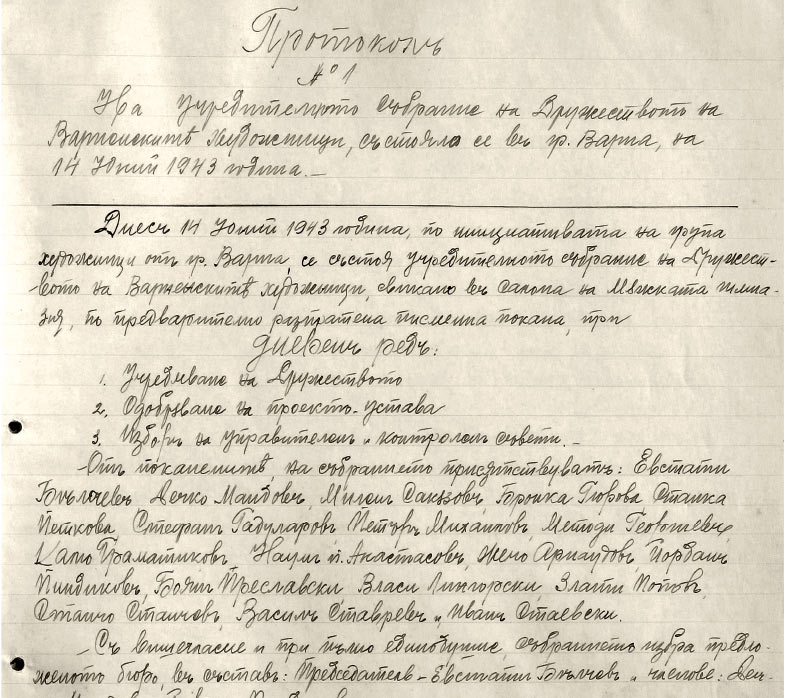 Протоколъ
№ 1
На учредителното събрание на Дружеството на
Варненскитѣ художници, състояло се въ гр. Варна, на
14 Юний 1943 година. –
Днесъ 14 Юний 1943 година, по инициативата на група
художници отъ гр. Варна, се състоя учредителното събрание на Дружест-
вото на Варненскитѣ художници, свикано въ салона на Мѫжката гимна-
зия, по предварително разпратена писменна покана, при
дневенъ редъ:
1. Учредяване на Дружеството
2. Одобряване на проекто-устава
3. Изборъ на управителенъ и контроленъ съвети. –
Отъ поканенитѣ, на събранието присѫтствуватъ: Евстати
Бъчкова, Дечко Мандовъ, Милошъ Сакъзовъ, Бронка Гюрова, Станка
Петкова, Стефанъ Гадуларовъ, Петъръ Михайловъ, Методи Георгиевъ,
Кало Граматиковъ, Наумъ п. Анастасовъ, Жечо Арнаудовъ, Йорданъ
Пиндиковъ, Боянъ Преславски, Власи Лингорски, Злати Поповъ,
Станчо Станчовъ, Василъ Ставревъ и Иванъ Стаевски.
Съ вишегласие и при пълно единодушие, събранието избра предло-
женото бюро, въ съставъ: Председатель – Евстати и членове: Деч-